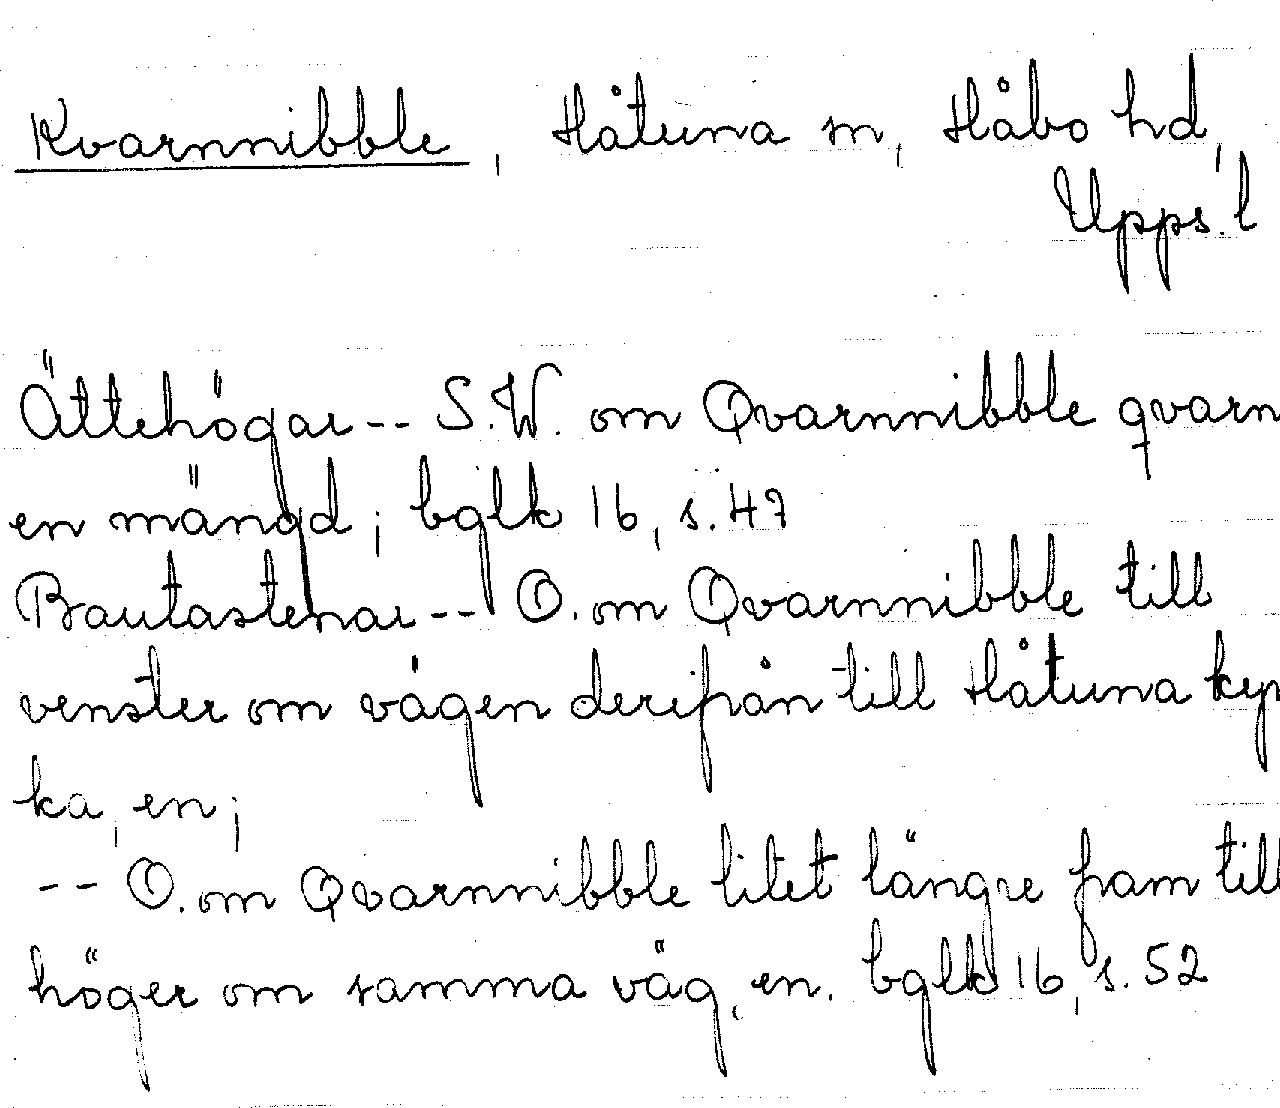 Kvarnnibble, Håtuna sn, Håbo hd,
Upps. l
Ättehögar-- S.W. om Qvarnnibble qvarn
en mängd; bglk 16, s. 47
Bautastenar-- O. om Qvarnnibble till
venster om vägen derifrån till Håtuna kyr
ka, en;
-- O. om Qvarnnibble litet längre fram till
höger om samma väg, en. bglk 16, s. 52